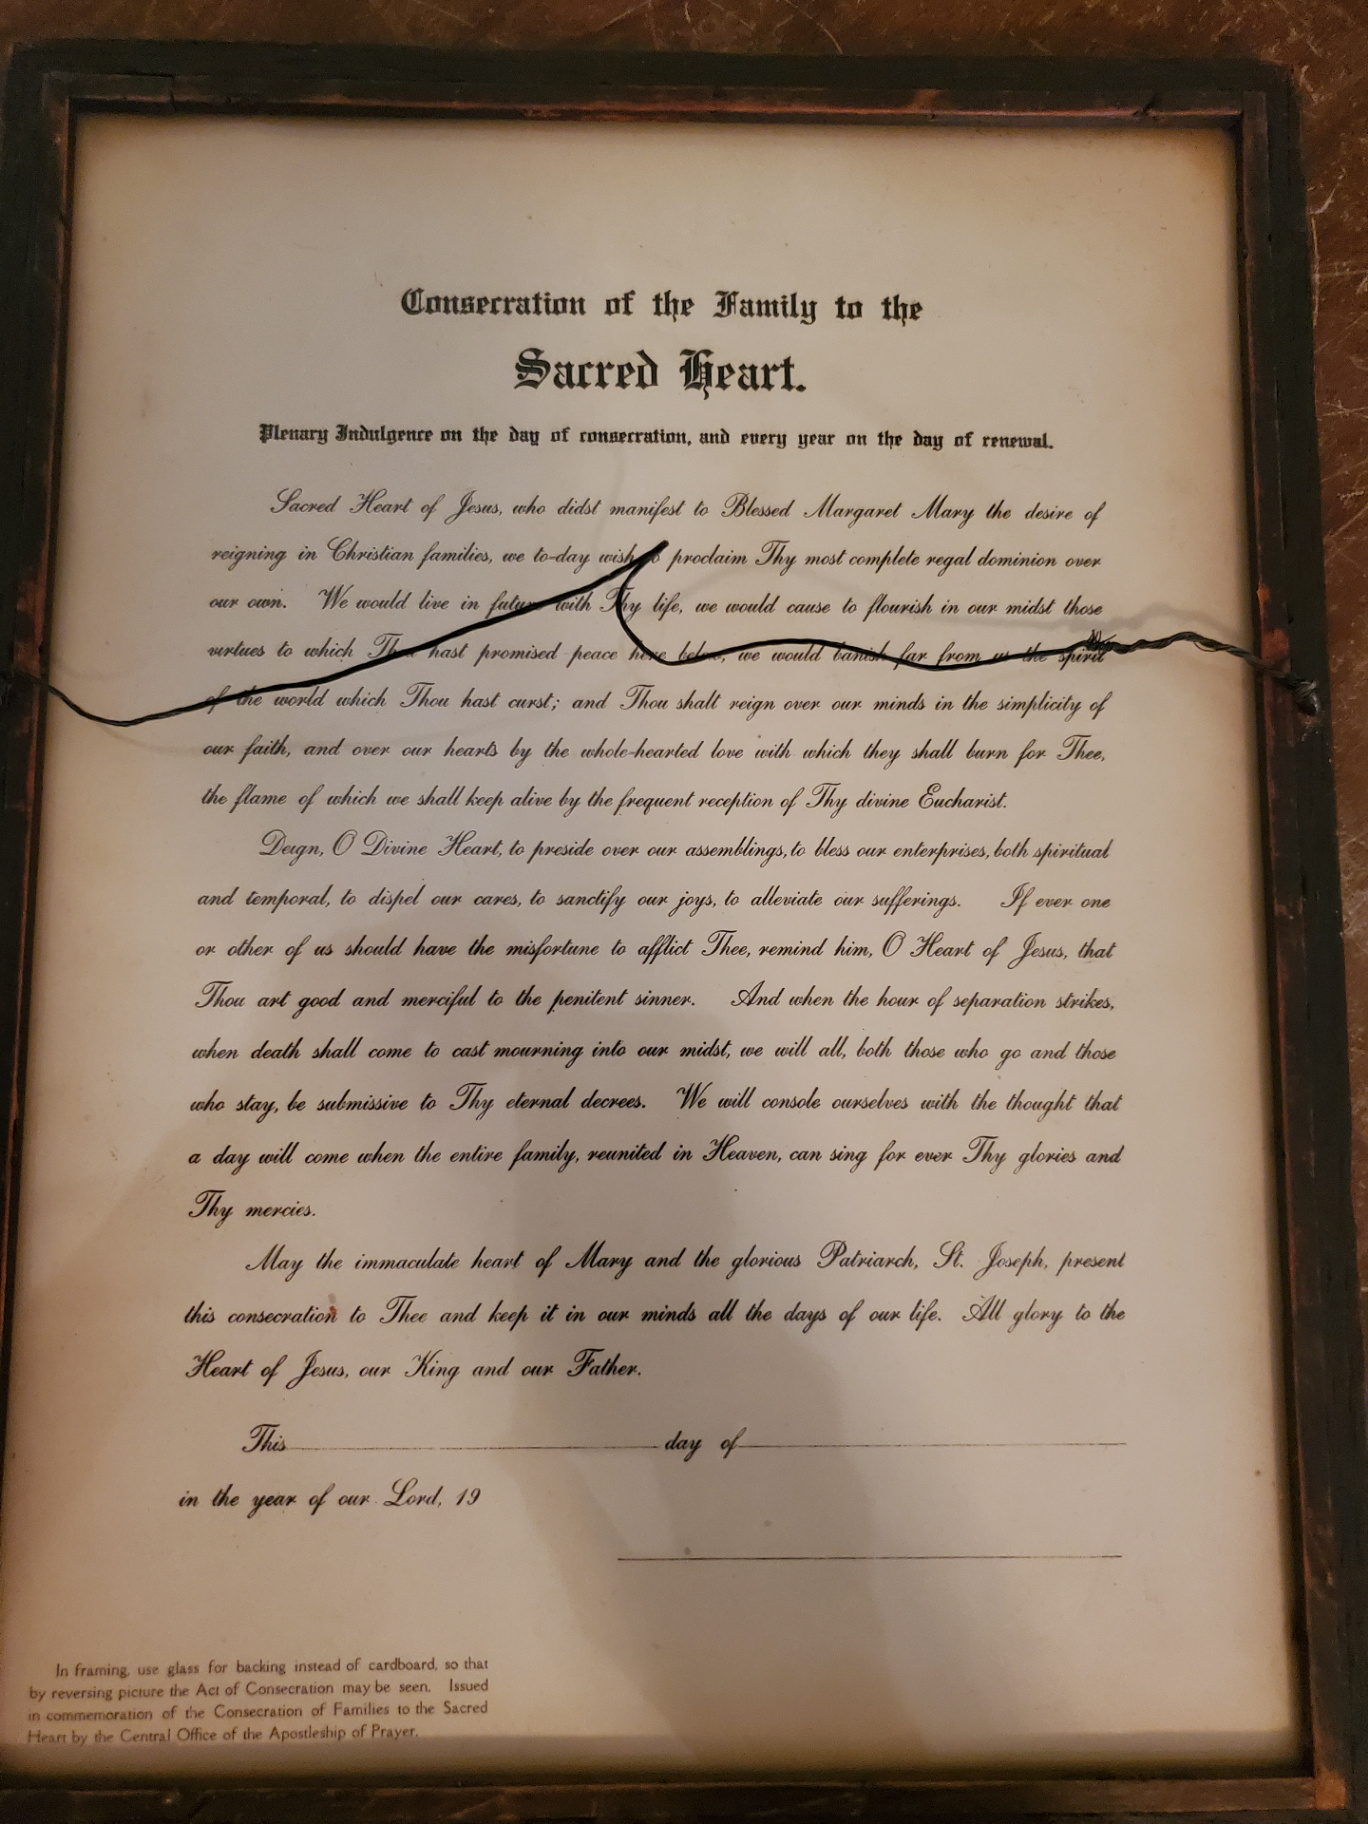 Consecration of the Family to the
Sacred Heart.
Plenary Indulgence on the day of consecration, and every year on the day of renewal.
Sacred Heart of Jesus, who didst manifest to Blessed Margaret Mary the desire of
reigning in Christian families, we to-day wish to proclaim Thy most complete regal dominion over
our own. We would live in future with Thy life, we would cause to flourish in our midst those
virtues to which Thou hast promised peace here below, we would banish far from us the spirit
of the world which Thou hast curst; and Thou shalt reign over our minds in the simplicity of
our faith, and over our hearts by the whole-hearted love with which they shall burn for Thee,
the flame of which we shall keep alive by the frequent reception of Thy divine Eucharist.
Deign, O Divine Heart, to preside over our assemblings, to bless our enterprises, both spiritual
and temporal, to dispel our cares, to sanctify our joys, to alleviate our sufferings. If ever one
or other of us should have the misfortune to afflict Thee, remind him, O Heart of Jesus, that
Thou art good and merciful to the penitent sinner. And when the hour of separation strikes,
when death shall come to cast mourning into our midst, we will all, both those who go and those
who stay, be submissive to Thy eternal decrees. We will console ourselves with the thought that
a day will come when the entire family, reunited in Heaven, can sing for ever Thy glories and
Thy mercies.
May the immaculate heart of Mary and the glorious Patriarch, St. Joseph, present
this consecration to Thee and keep it in our minds all the days of our life. All glory to the
Heart of Jesus, our King and our Father.
This day of
in the year of our Lord, 19
In framing, use glass for backing instead of cardboard, so that
by reversing picture the Act of Consecration may be seen. Issued
in commemoration of the Consecration of Families to the Sacred
Heart by the Central Office of the Apostleship of Prayer.